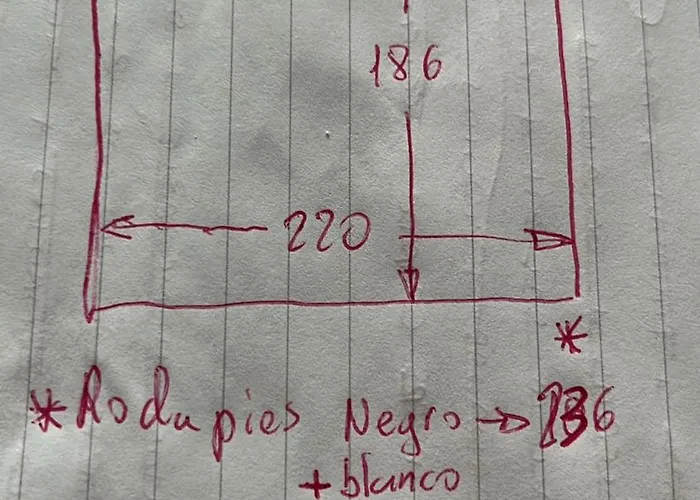 186
220
*
* Rodapies Negro → 236
+ blanco